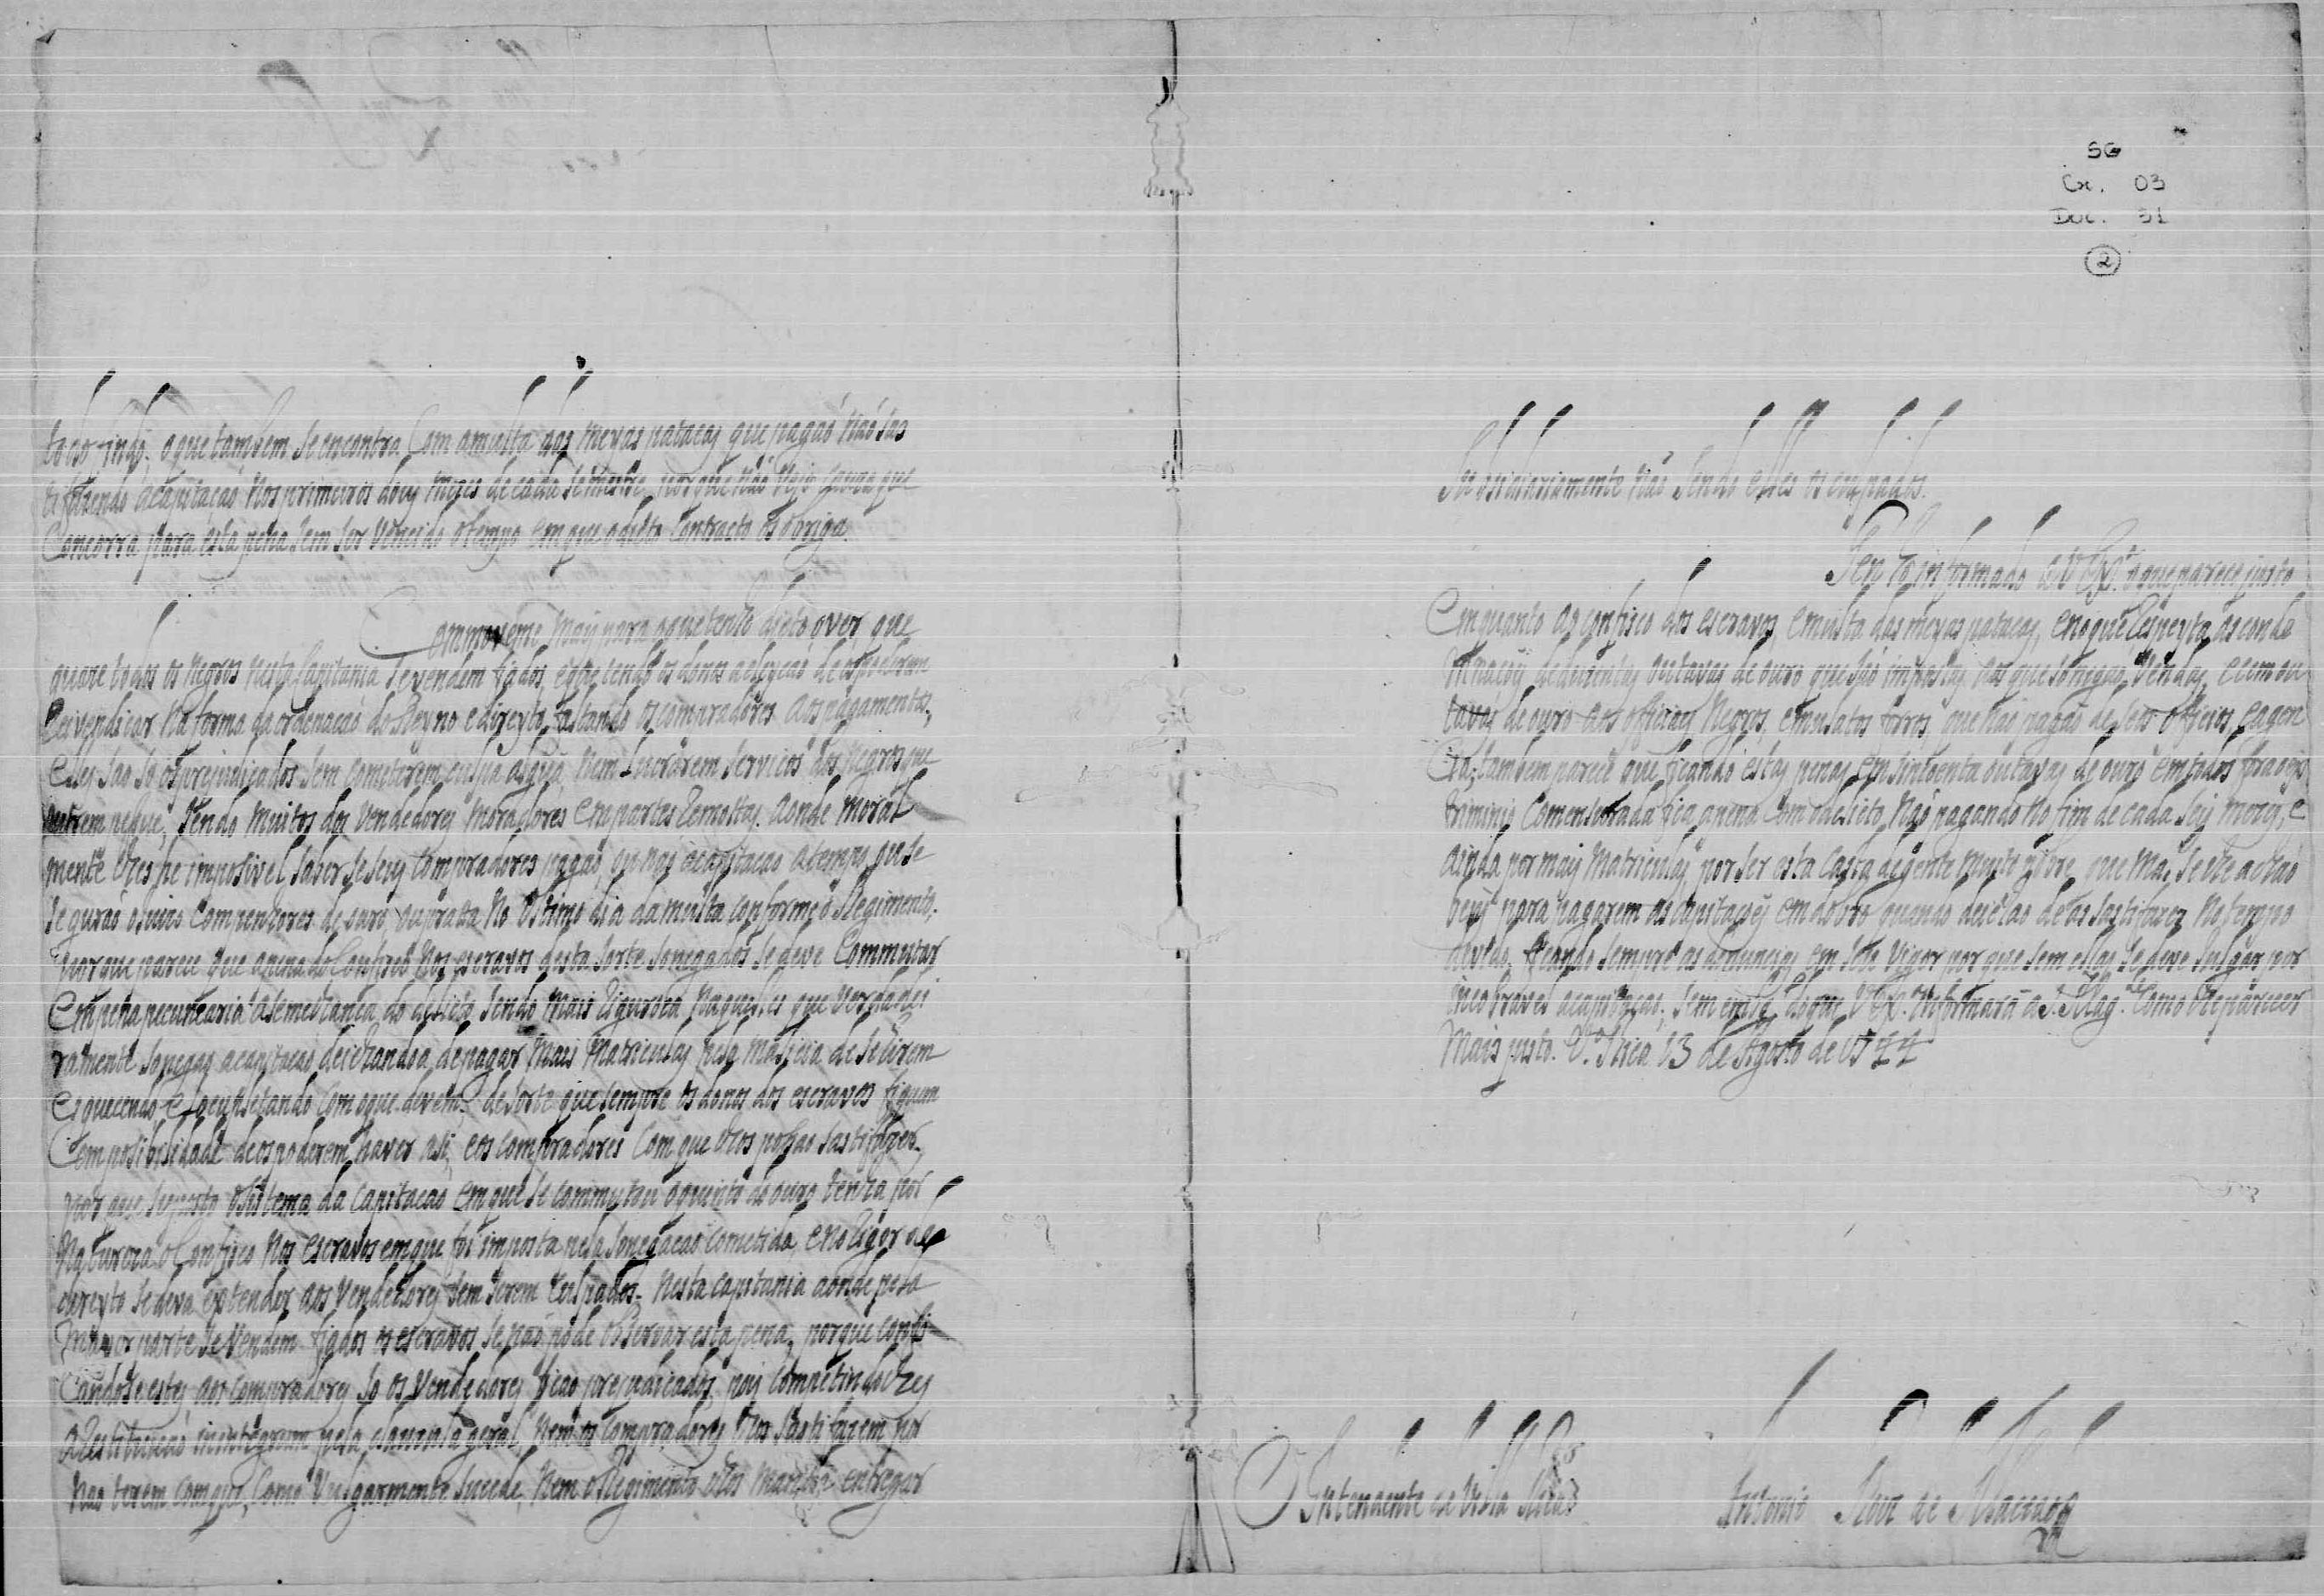 todo findo; o que tambem se encontra Com amulta das meyas patacas que pagaõ naõ sas
tifazendo acapitaçaõ nos primeiros dous mezes de cada semestre, porque naõ vejo causa que
Concorra para esta pena sem ser vencido otempo em que odito Contracto os obriga.
Commoveme mais para oque tenho dicto over que
quase todos os Negros nesta Capitania se vendem fiados, eque tendo os donos aeleyçaõ de os poderem
Reivendicar na forma da ordenaçaõ do Reyno e direyto, faltando os compradores aos pagamentos,
elles saõ só os prejudicados sem cometerem culpa algũa, nem Lucrarem servicos dos negros que
outrem pessue, sendo muitos dos Vendedores moradores em partes Remottas, aonde moral
mente lhes he imposivel saber se seus compradores pagaõ, ou naõ acapitacaõ atempo, que se
seguraõ
porque parece que apena do Confisco nos escravos desta sorte sonegados se deve Commutar
em pena pecuniaria asemelhanca do delicto sendo mais Rigurosa naquelles que verdadei
ramente sonegaõ acapitacaõ deichando a depagar mais Matriculas pela malicia de se hirem
esquecendo, e Locupletando com oque devem, de sorte que sempre os donos dos escravos fiquem
Com posibilidade de os poderem haver asi, eos compradores Com que lhos possaõ sastifazer;
por que, suposto osistema da Capitacaõ em que se commutou oquinto do ouro tenha por
natureza oConfisco nos escravos em que foi imposta pela sonegacaõ cometida, eno Rigor de
direyto se deva extender aos Vendedores sem serem culpados, nesta capitania aonde pela
mayor parte se vendem fiados os escravos se naõ pode observar esta pena, porque confis
Candose estes aos compradores só os Vendedores ficaõ prejudicados, pois competindolhes
aRestituicaõ inintegrum pela clauzula geral, nem os Compradores lhos sastifazem por
naõ terem comque, Como vulgarmente sucede, nem oRegimento lhos manda entregar
SG
Cx. 03
Doc. 31
2
Subsidiariamente naõ sendo elles os culpados.
Tenho informado a V. Ex.ª oque parece justo
Emquanto ao confisco dos escravos, emulta das meyas patacas, eno que Respeyta as conde
nacoẽs de duzentas outavas de ouro que saõ impostas aos que sonegaõ vendas, e cem ou
tavas de ouro aos officiaes Negros, emulatos forros, que naõ pagaõ de seus officios, eagen
cia; tambem parece que ficando estas penas em sincoenta outavas de ouro em todos
Comensurada fica apena com odelicto, naõ pagando no fim de cada seis mezes, e
ainda por mais matriculas por ser esta Casta degente muito pobre, que mal se lhe achaõ
bens para pagarem as capitacoẽs em dobro quando deichaõ de as sastifazer no tempo
devido, ficando sempre as denuncias em seu vigor por que sem ellas se deve Julgar por
incobravel acapitacaõ; sem embargo do que V. Ex.ª informará a S. Mag.e Como lhe parecer
mais justo. V.ª Rica 13 de Agosto de 1744
O Intendente de Villa Rica
Antonio Roiz de Macedo